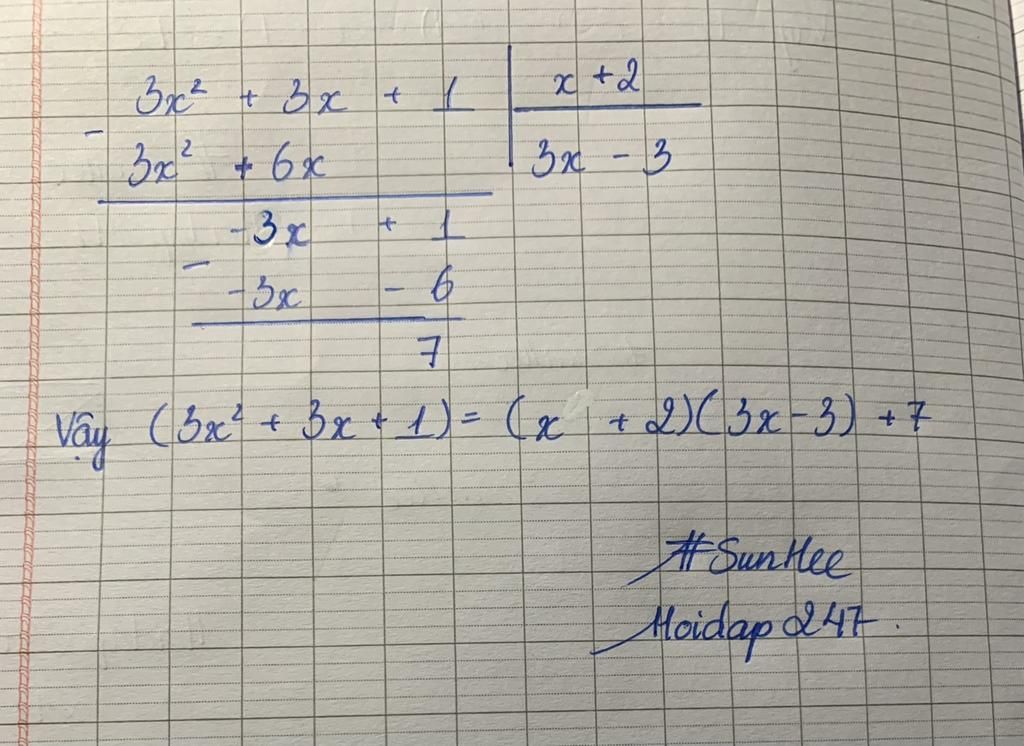 3x² + 3x + 1 | x + 2
- 3x² + 6x | 3x - 3
-3x + 1
- -3x - 6
7
Vậy (3x² + 3x + 1) = (x + 2)(3x - 3) + 7
#SunHee
Hoidap247.